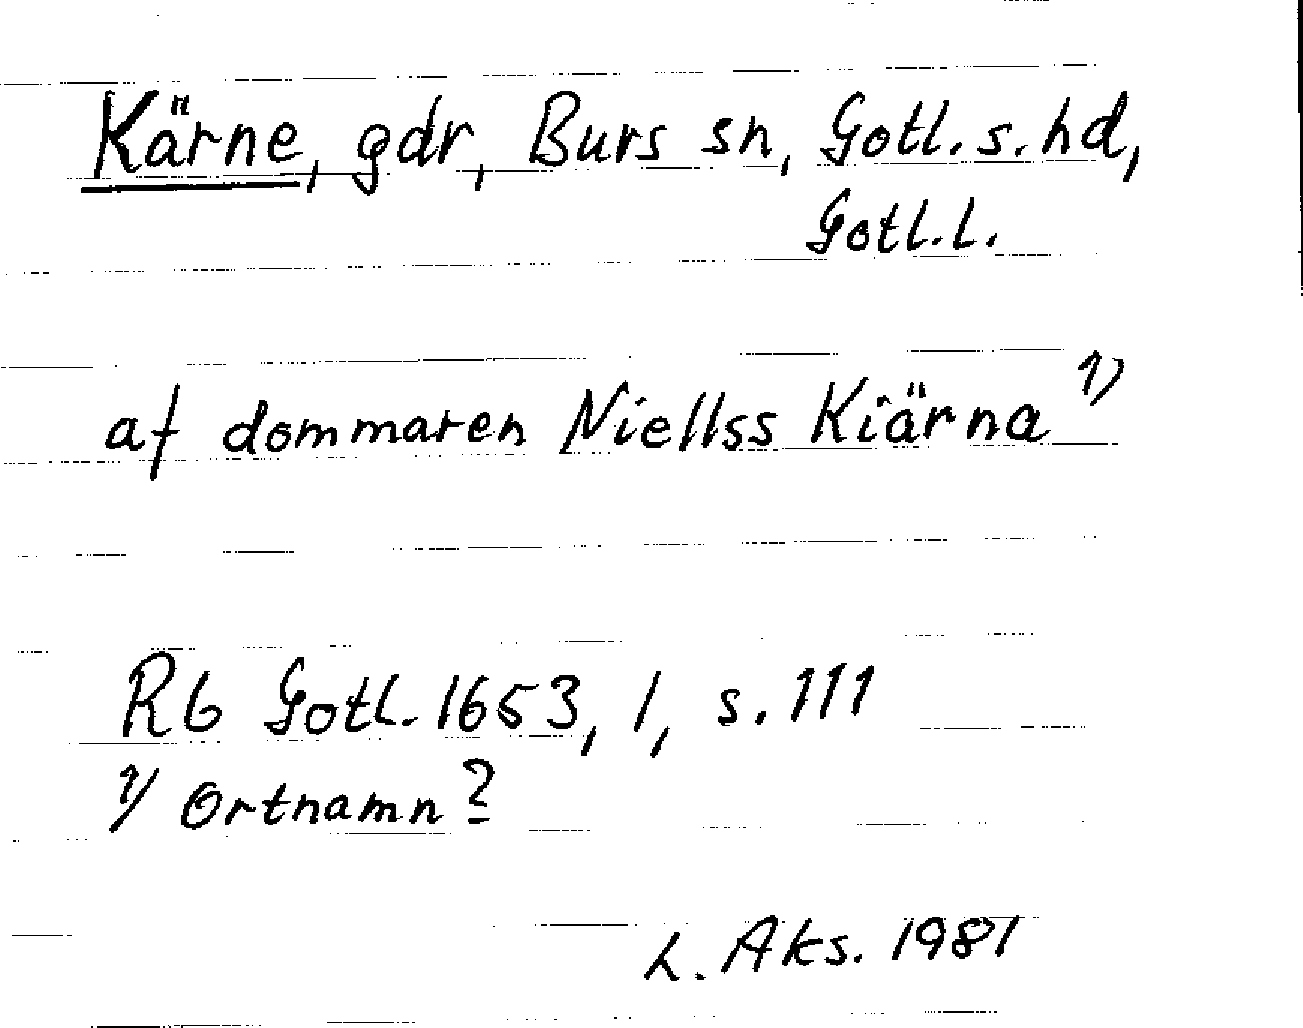 Kärne, gdr, Burs sn, Gotl. s. hd,
Gotl. l.
af dommaren Niellss Kiärna 1)
Rb Gotl. 1653, 1, s. 111
1) Ortnamn?
L. Aks. 1981